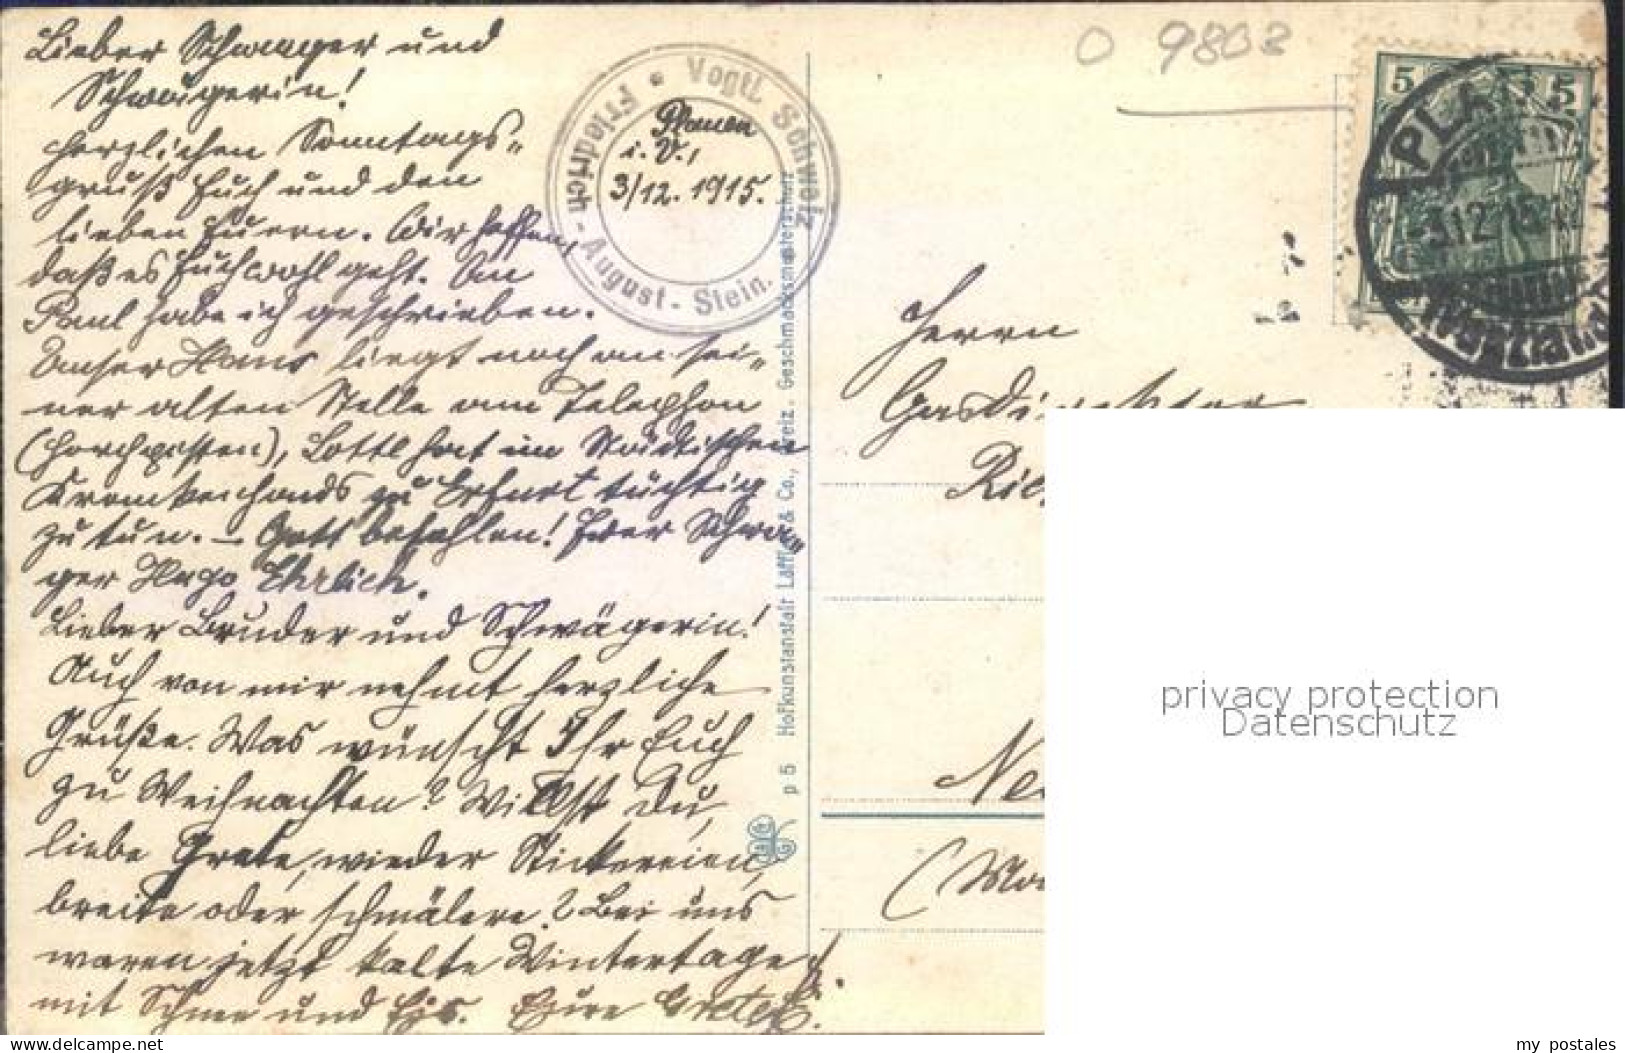 Lieber Schwager und
Schwägerin!
Herzlichen Sonntags-
gruß Euch und den
lieben Euern. Wir hoffen,
daß es Euch wohl geht. An
Paul habe ich geschrieben.
Unser Hans liegt noch an sei-
ner alten Stelle am Telephon
(Horchposten), Lottl hat im Städtischen
Krankenhaus zu Erfurt tüchtig
zu tun. – Gott befohlen! Euer Schwa-
ger Hugo Ehrlich.
Lieber Bruder und Schwägerin!
Auch von mir nehmt herzliche
Grüße. Was wünscht Ihr Euch
zu Weihnachten? Willst Du,
liebe Grete, wieder Stickereien,
breite oder schmälere? Bei uns
waren jetzt kalte Wintertage
mit Schnee und Eis. Eure Grete E.
Vogtl. Schweiz
Friedrich-August-Stein.
Plauen
i. V.,
3/12. 1915.
p 5 Hofkunstanstalt Löffler & Co., Greiz. Geschmacksmusterschutz
0 9803
5 5
PLAUEN
3.12.15
(Vogtland)
Herrn
Gasdirektor
Ric
Ne
(Mo
privacy protection
Datenschutz
my postales
www.delcampe.net